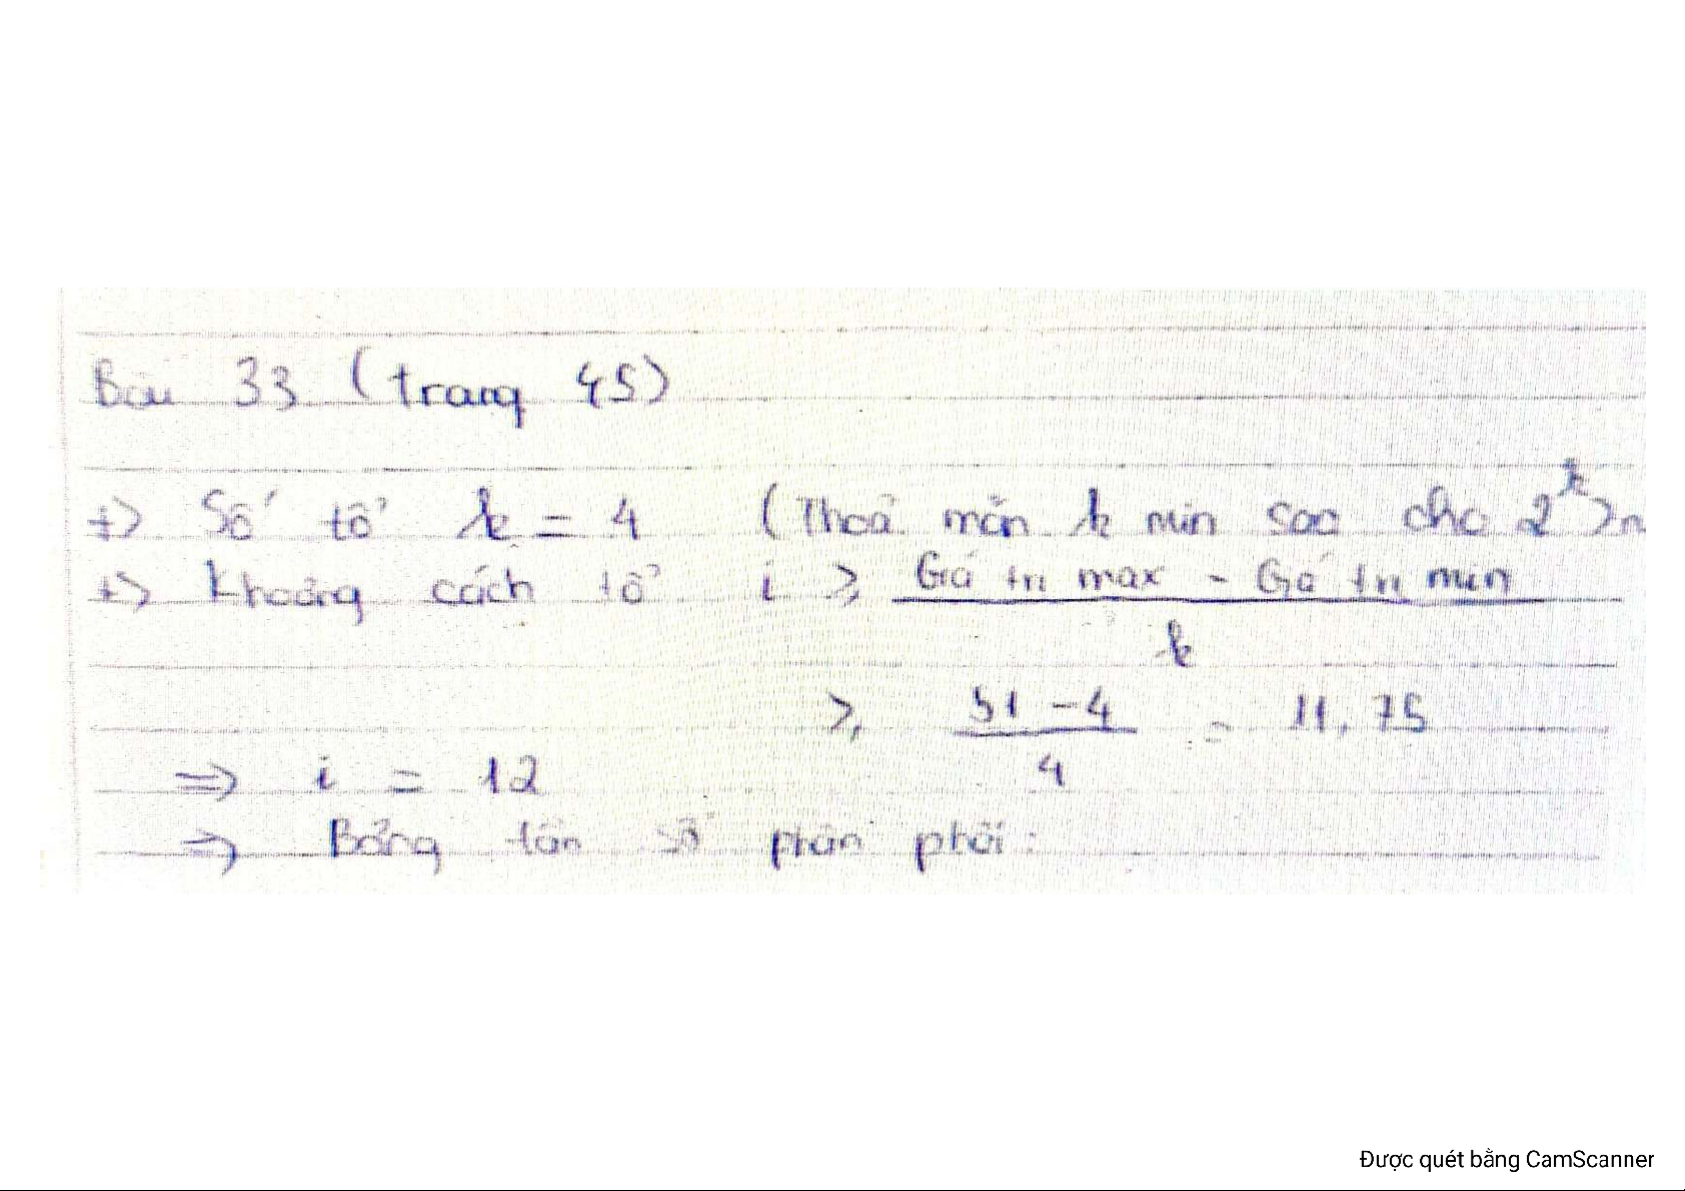 Bài 33 (trang 45)
+) Số tổ k = 4 (Thoả mãn k min sao cho 2^k > n
+) Khoảng cách tổ i ≥ Giá trị max - Giá trị min
k
≥ 51 - 4 = 11,75
4
=> i = 12
=> Bảng tần số phân phối:
Được quét bằng CamScanner